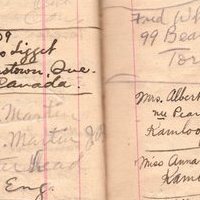 09
s Ligget
nstown, Que.
Canada.
Martin
Martin Jr
head
Eng.
Fred Wh
99 Bea
Tor
Mrs. Albert
née Pear
Kamloo
Miss Anna
Kam